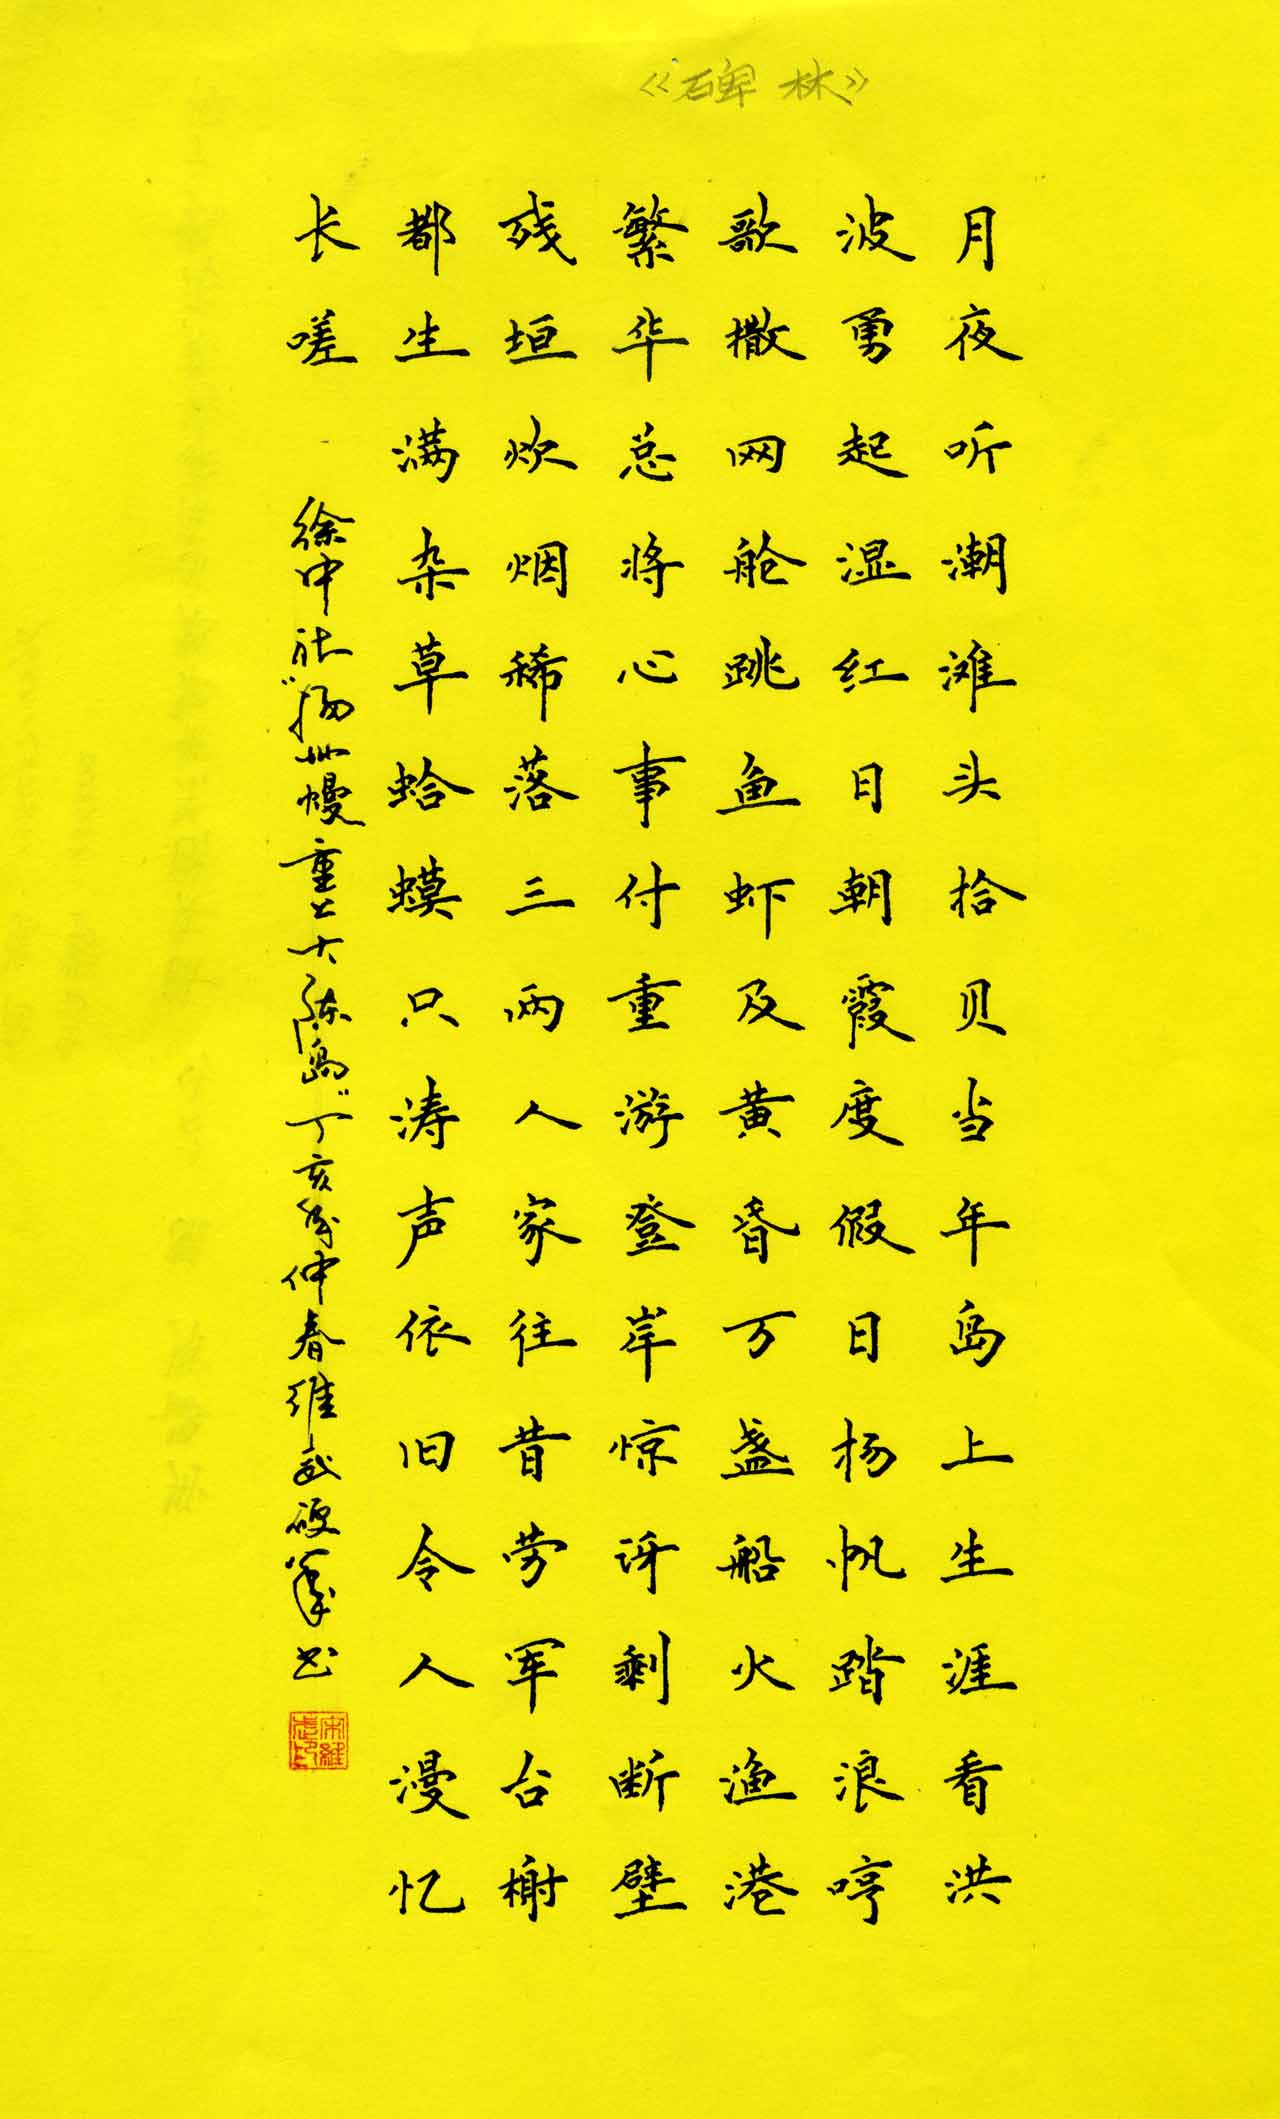 《碑林》
月夜听潮滩头拾贝当年岛上生涯看洪
波勇起湿红日朝霞度假日杨帆踏浪哼
歌撒网舱跳鱼虾及黄昏万盏船火渔港
繁华总将心事付重游登岸惊讶剩断壁
残垣炊烟稀落三两人家往昔劳军台榭
都生满杂草蛤蟆只涛声依旧令人漫忆
长嗟
徐中社"扬州慢重上大陈岛"丁亥年仲春维武硬笔书
宋维武印